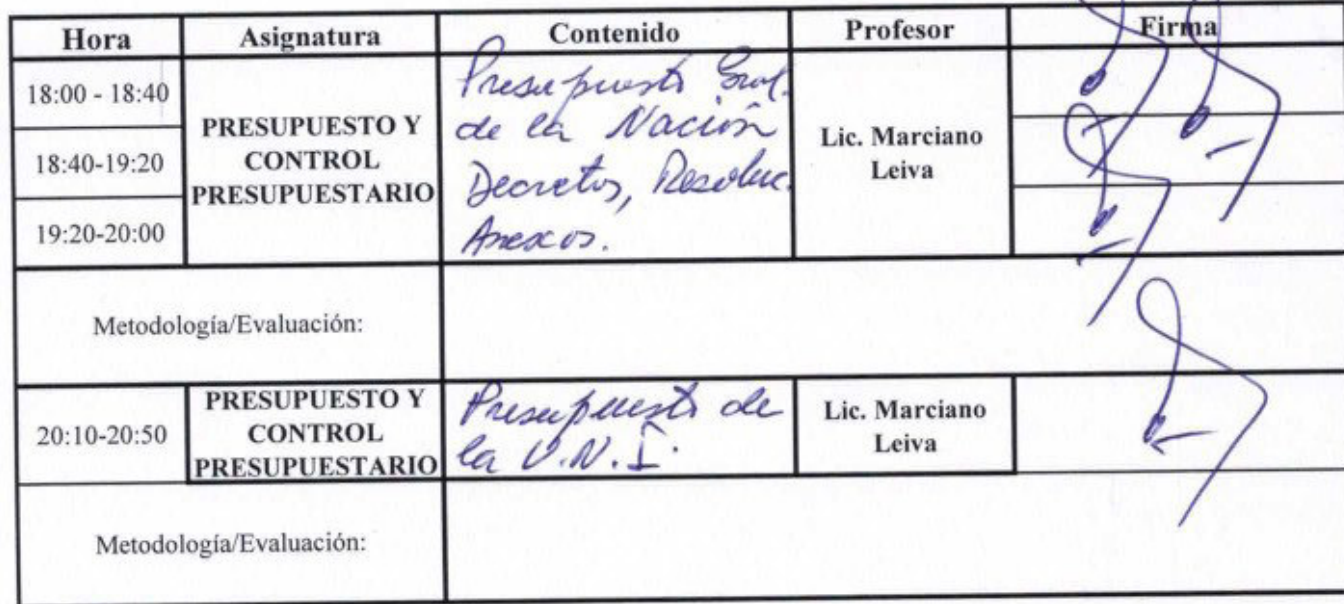 Hora Asignatura Contenido Profesor Firma
18:00 - 18:40
18:40-19:20
19:20-20:00
PRESUPUESTO Y
CONTROL
PRESUPUESTARIO
Presupuesto Gral.
de la Nación
Decretos, Resoluc.
Anexos.
Lic. Marciano
Leiva
Metodología/Evaluación:
20:10-20:50
PRESUPUESTO Y
CONTROL
PRESUPUESTARIO
Presupuesto de
la U.N.I.
Lic. Marciano
Leiva
Metodología/Evaluación: